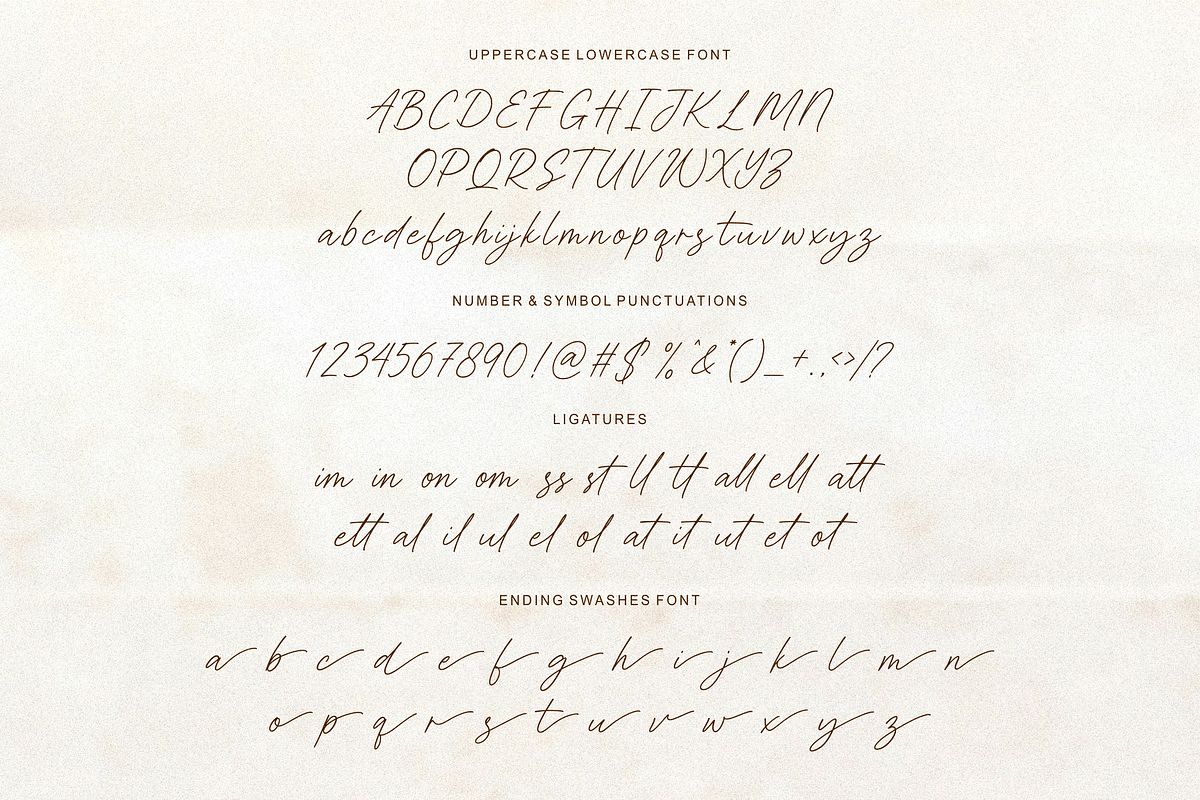 UPPERCASE LOWERCASE FONT
ABCDEFGHIJKLMN
OPQRSTUVWXYZ
abcdefghijklmnopqrstuvwxyz
NUMBER & SYMBOL PUNCTUATIONS
1234567890!@#$%^&*()_+.,<>/?
LIGATURES
im in on om ss st ll tt all ell att
ett al il ul el ol at it ut et ot
ENDING SWASHES FONT
a b c d e f g h i j k l m n
o p q r s t u v w x y z